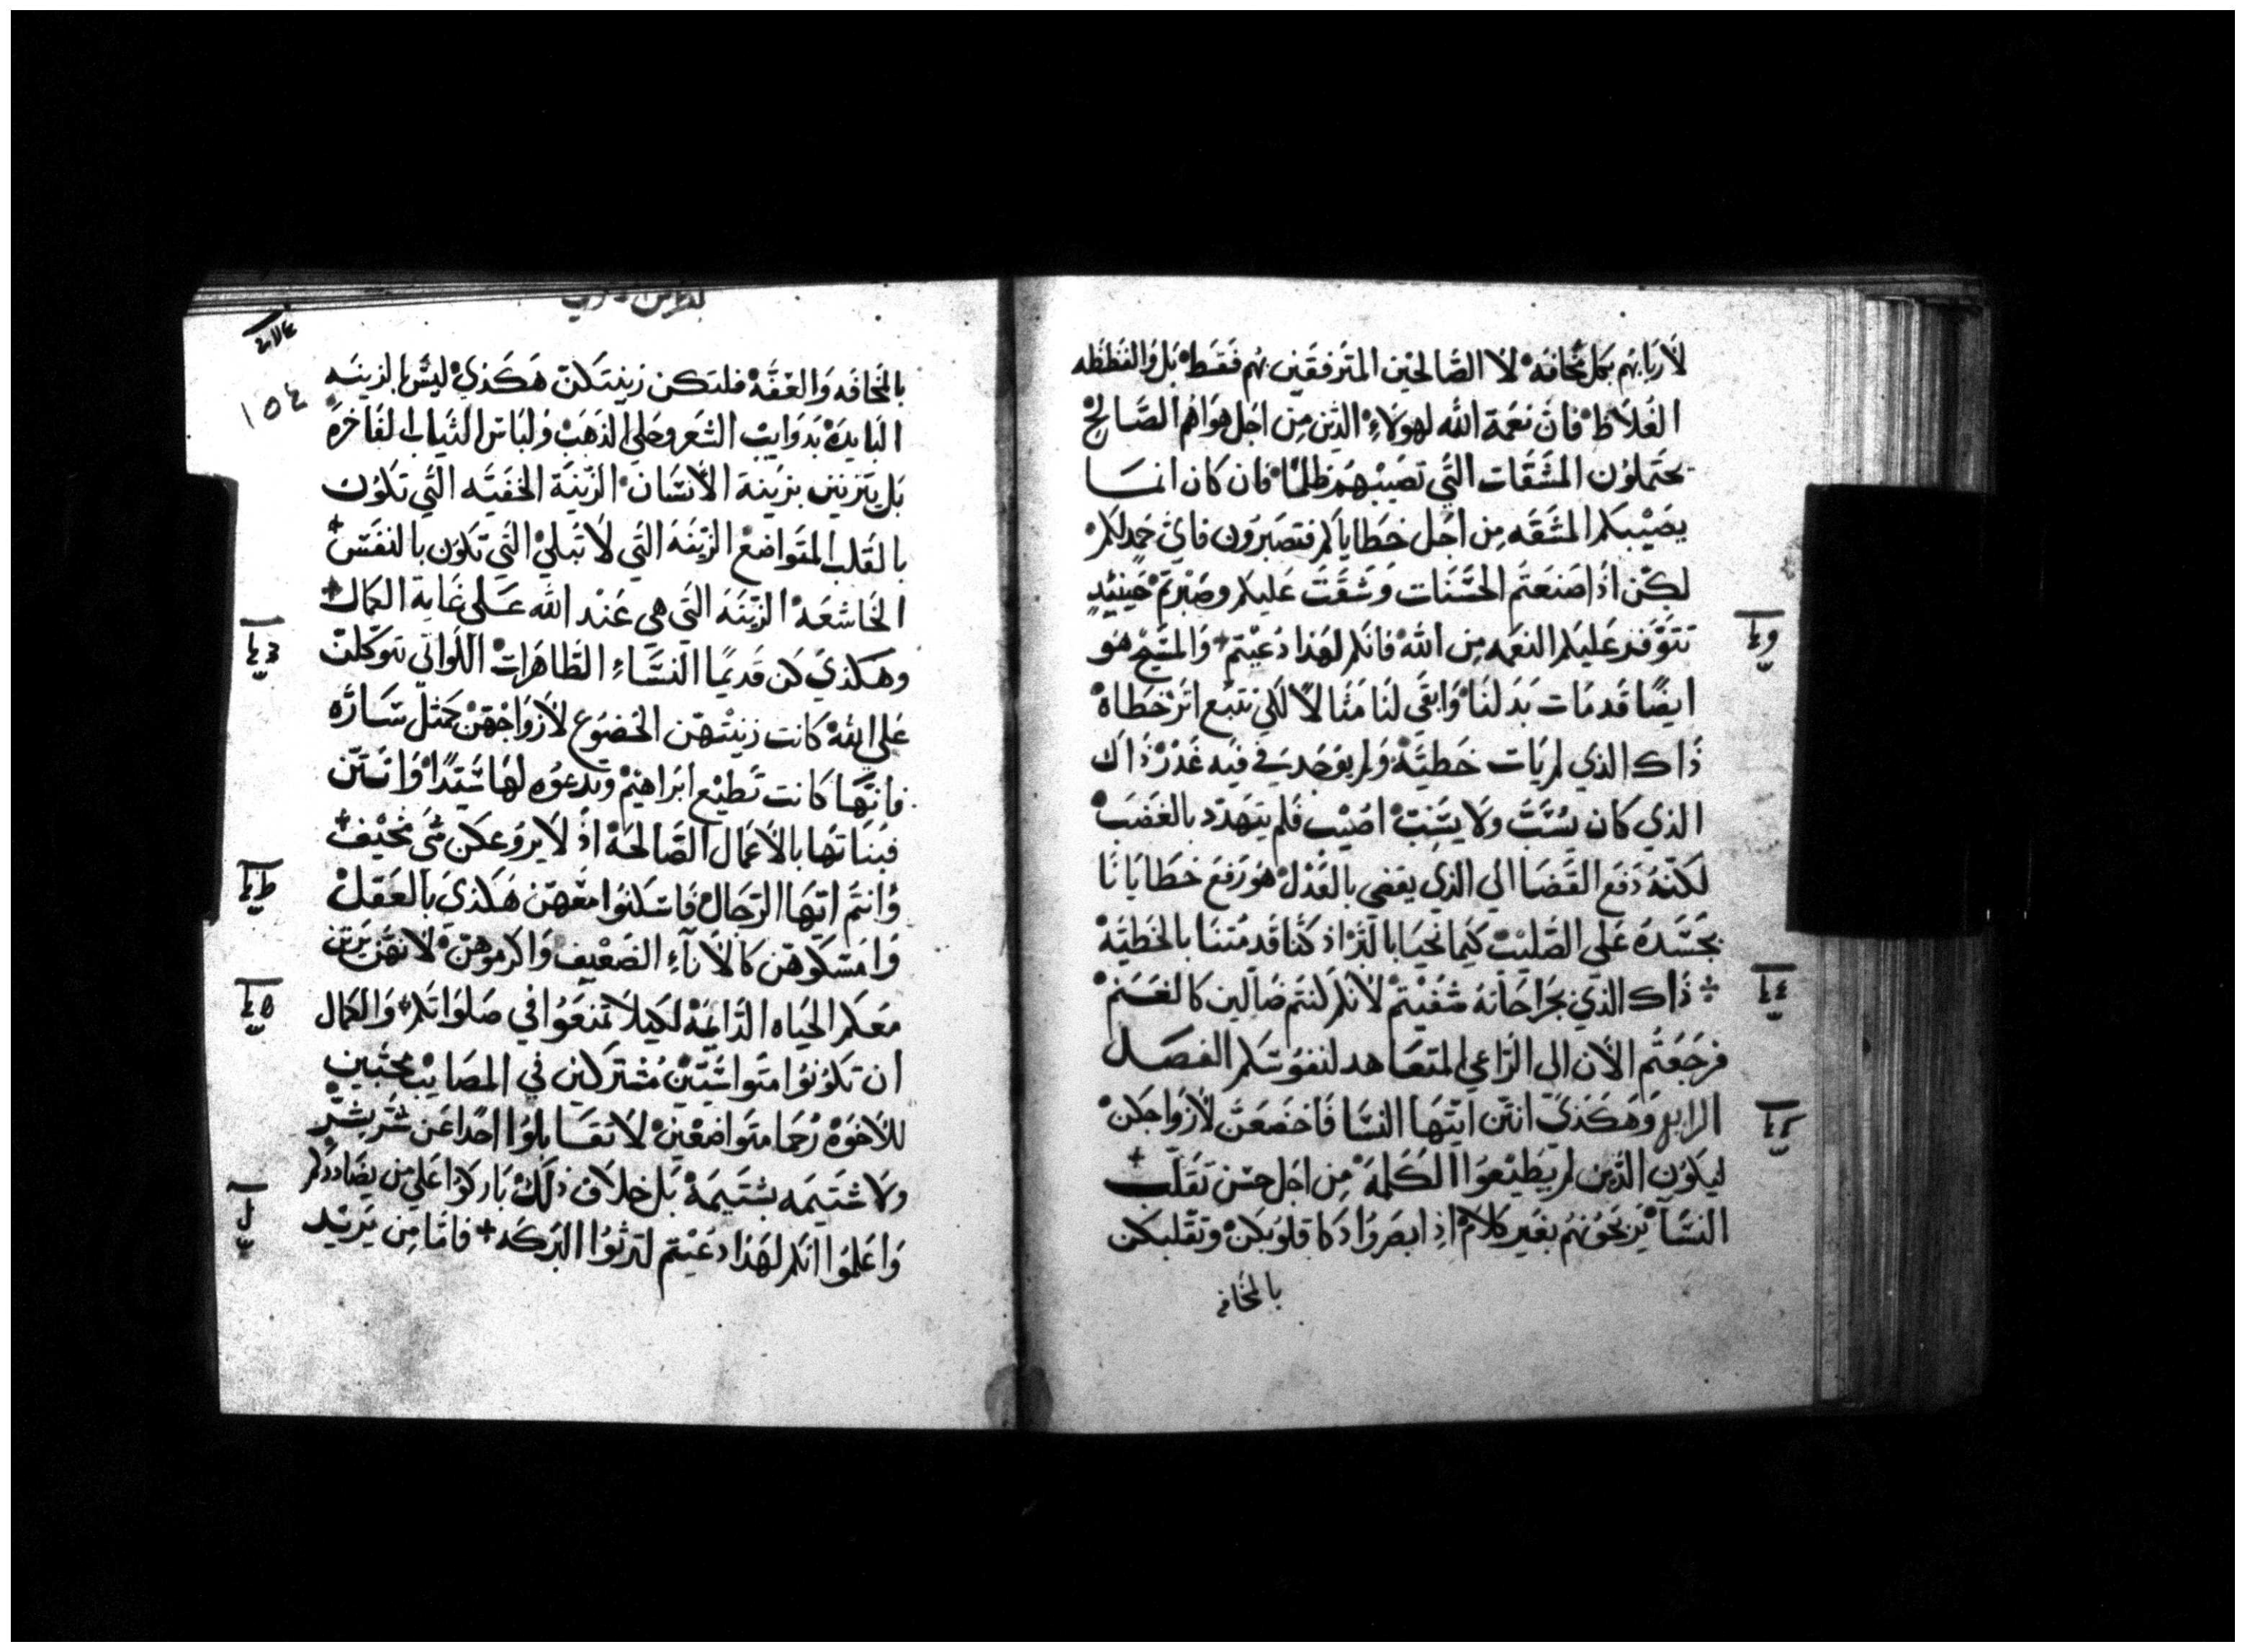 لأربابهم بكل مخافه لا الصالحين المترفقين بهم فقط بل والفظظه
الغلاظ فان نعمة الله لهولاء الذين من اجل هواهم الصالح
يحتملون المشقات التي تصيبهم ظلمًا فان كان انما
يصيبكم المشقه من اجل خطاياكم فتصبرون فاي حمد لكم
لكن اذا صنعتم الحسنات وشقت عليكم وصبرتم حينيدٍ
تتوفد عليكم النعمه من الله فانكم لهذا دعيتم والمسيح هو
ايضًا قد مات بدلنا وابقى لنا مثالاً لكي نتبع اثر خطاه
ذاك الذي لم يات خطيّة ولم يوجد في فيه غدر ذاك
الذي كان يُشتَّت ولا يشتِت اصيب فلم يتهدد بالغضب
لكنّه دفع القضا الي الذي يقضي بالعدل هو رفع خطايانا
بجسده على الصليب كيما نحيا بالبرّ اذ كنّا قد متنا بالخطيّة
ذاك الذي بجراحاته شفيتم لانكم كنتم ضالين كالغنم
فرجعتم الأن الى الراعي المتعاهد لنفوسكم الفصل
الرابع وهكذي انتن ايتها النسا فاخضعن لأزواجكن
ليكون الذين لم يطيعوا الكلمة من اجل حسن تقلّب
النسآ يربحونهم بغير كلام اذ ابصروا دكا قلوبكن وتقلبكن
بالمخافه
١٥٤
بالمخافه والعفّة فلتكن زينتكن هكذي ليس بالزينه
البايدة بدوايب الشعر وحلي الذهب ولباس الثياب الفاخرة
بل يتزينن بزينة الأنسان الزينة الخفيّه التي تكون
بالقلب المتواضع الزينه التي لا تبلي التي تكون بالنفس
الخاشعه الزينة التي هي عند الله على غاية الكمال
وهكذي كن قديمًا النساء الطاهرات اللواتي توكلن
على الله كانت زينتهن الخضوع لأزواجهن كمثل ساره
فانها كانت تطيع ابراهيم وتدعوه لها سيّدًا وانتن
فبناتها بالأعمال الصالحة اذ لا يروعكن شي مخيف
وانتم ايها الرجال فاسكنوا معهن هكذي بالعقل
وامسكوهن كالأناء الضعيف واكرموهن لانهن يرثن
معكم الحياه الدايمة لكيلا تمنعوا في صلواتكم والكمال
ان تكونوا متواسيّين مشتركين في المصايب محبين
للأخوة رحما متواضعين لا تقابلوا احدًا عن شر بشرّ
ولا شتيمه بشتيمة بل خلاف ذلك باركوا على من يضاددكم
واعلموا انكم لهذا دعيتم لترثوا البركه فامّا من يريد